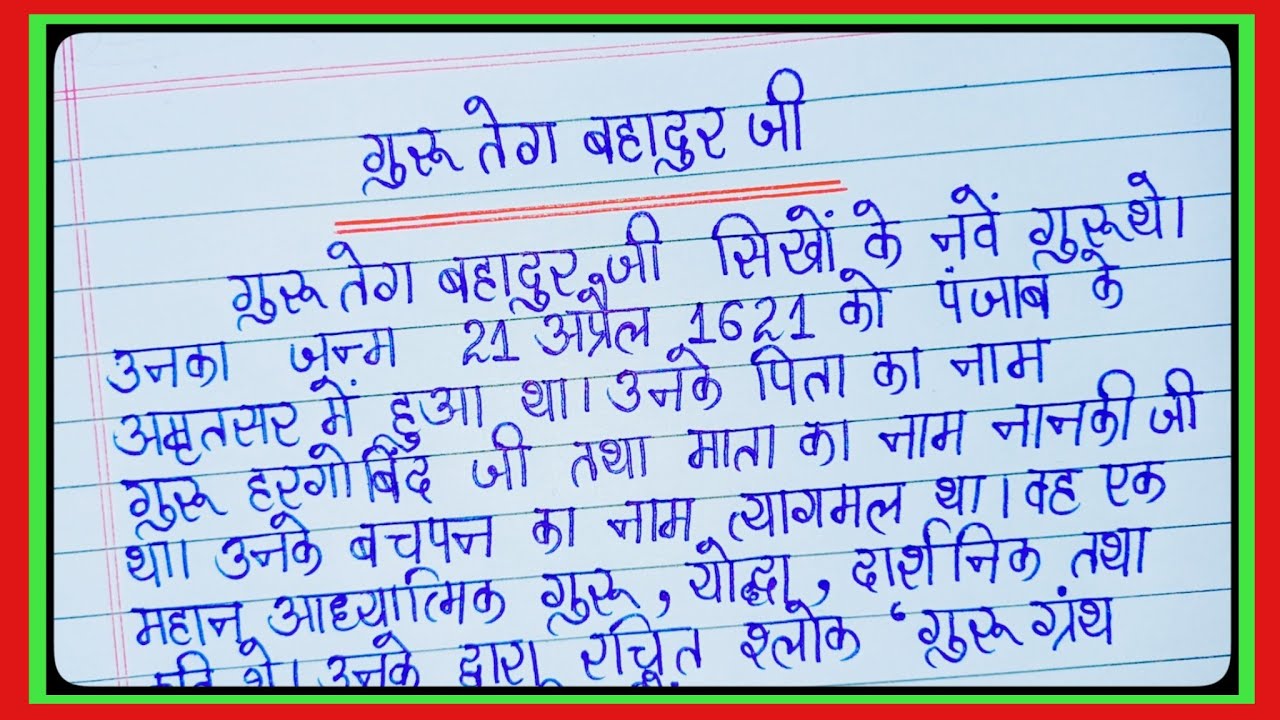 गुरू तेग बहादुर जी
गुरू तेग बहादुर जी सिखों के नवें गुरू थे।
उनका जन्म 21 अप्रैल 1621 को पंजाब के
अमृतसर में हुआ था। उनके पिता का नाम
गुरू हरगोबिंद जी तथा माता का नाम नानकी जी
था। उनके बचपन का नाम त्यागमल था। वह एक
महान् आध्यात्मिक गुरू, योद्धा, दार्शनिक तथा
थे। उनके द्वारा रचित श्लोक 'गुरू ग्रंथ